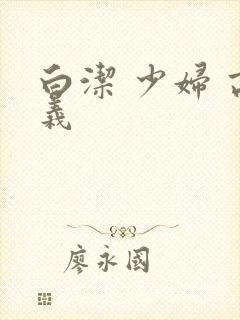 白潔 少婦
義
廖永國